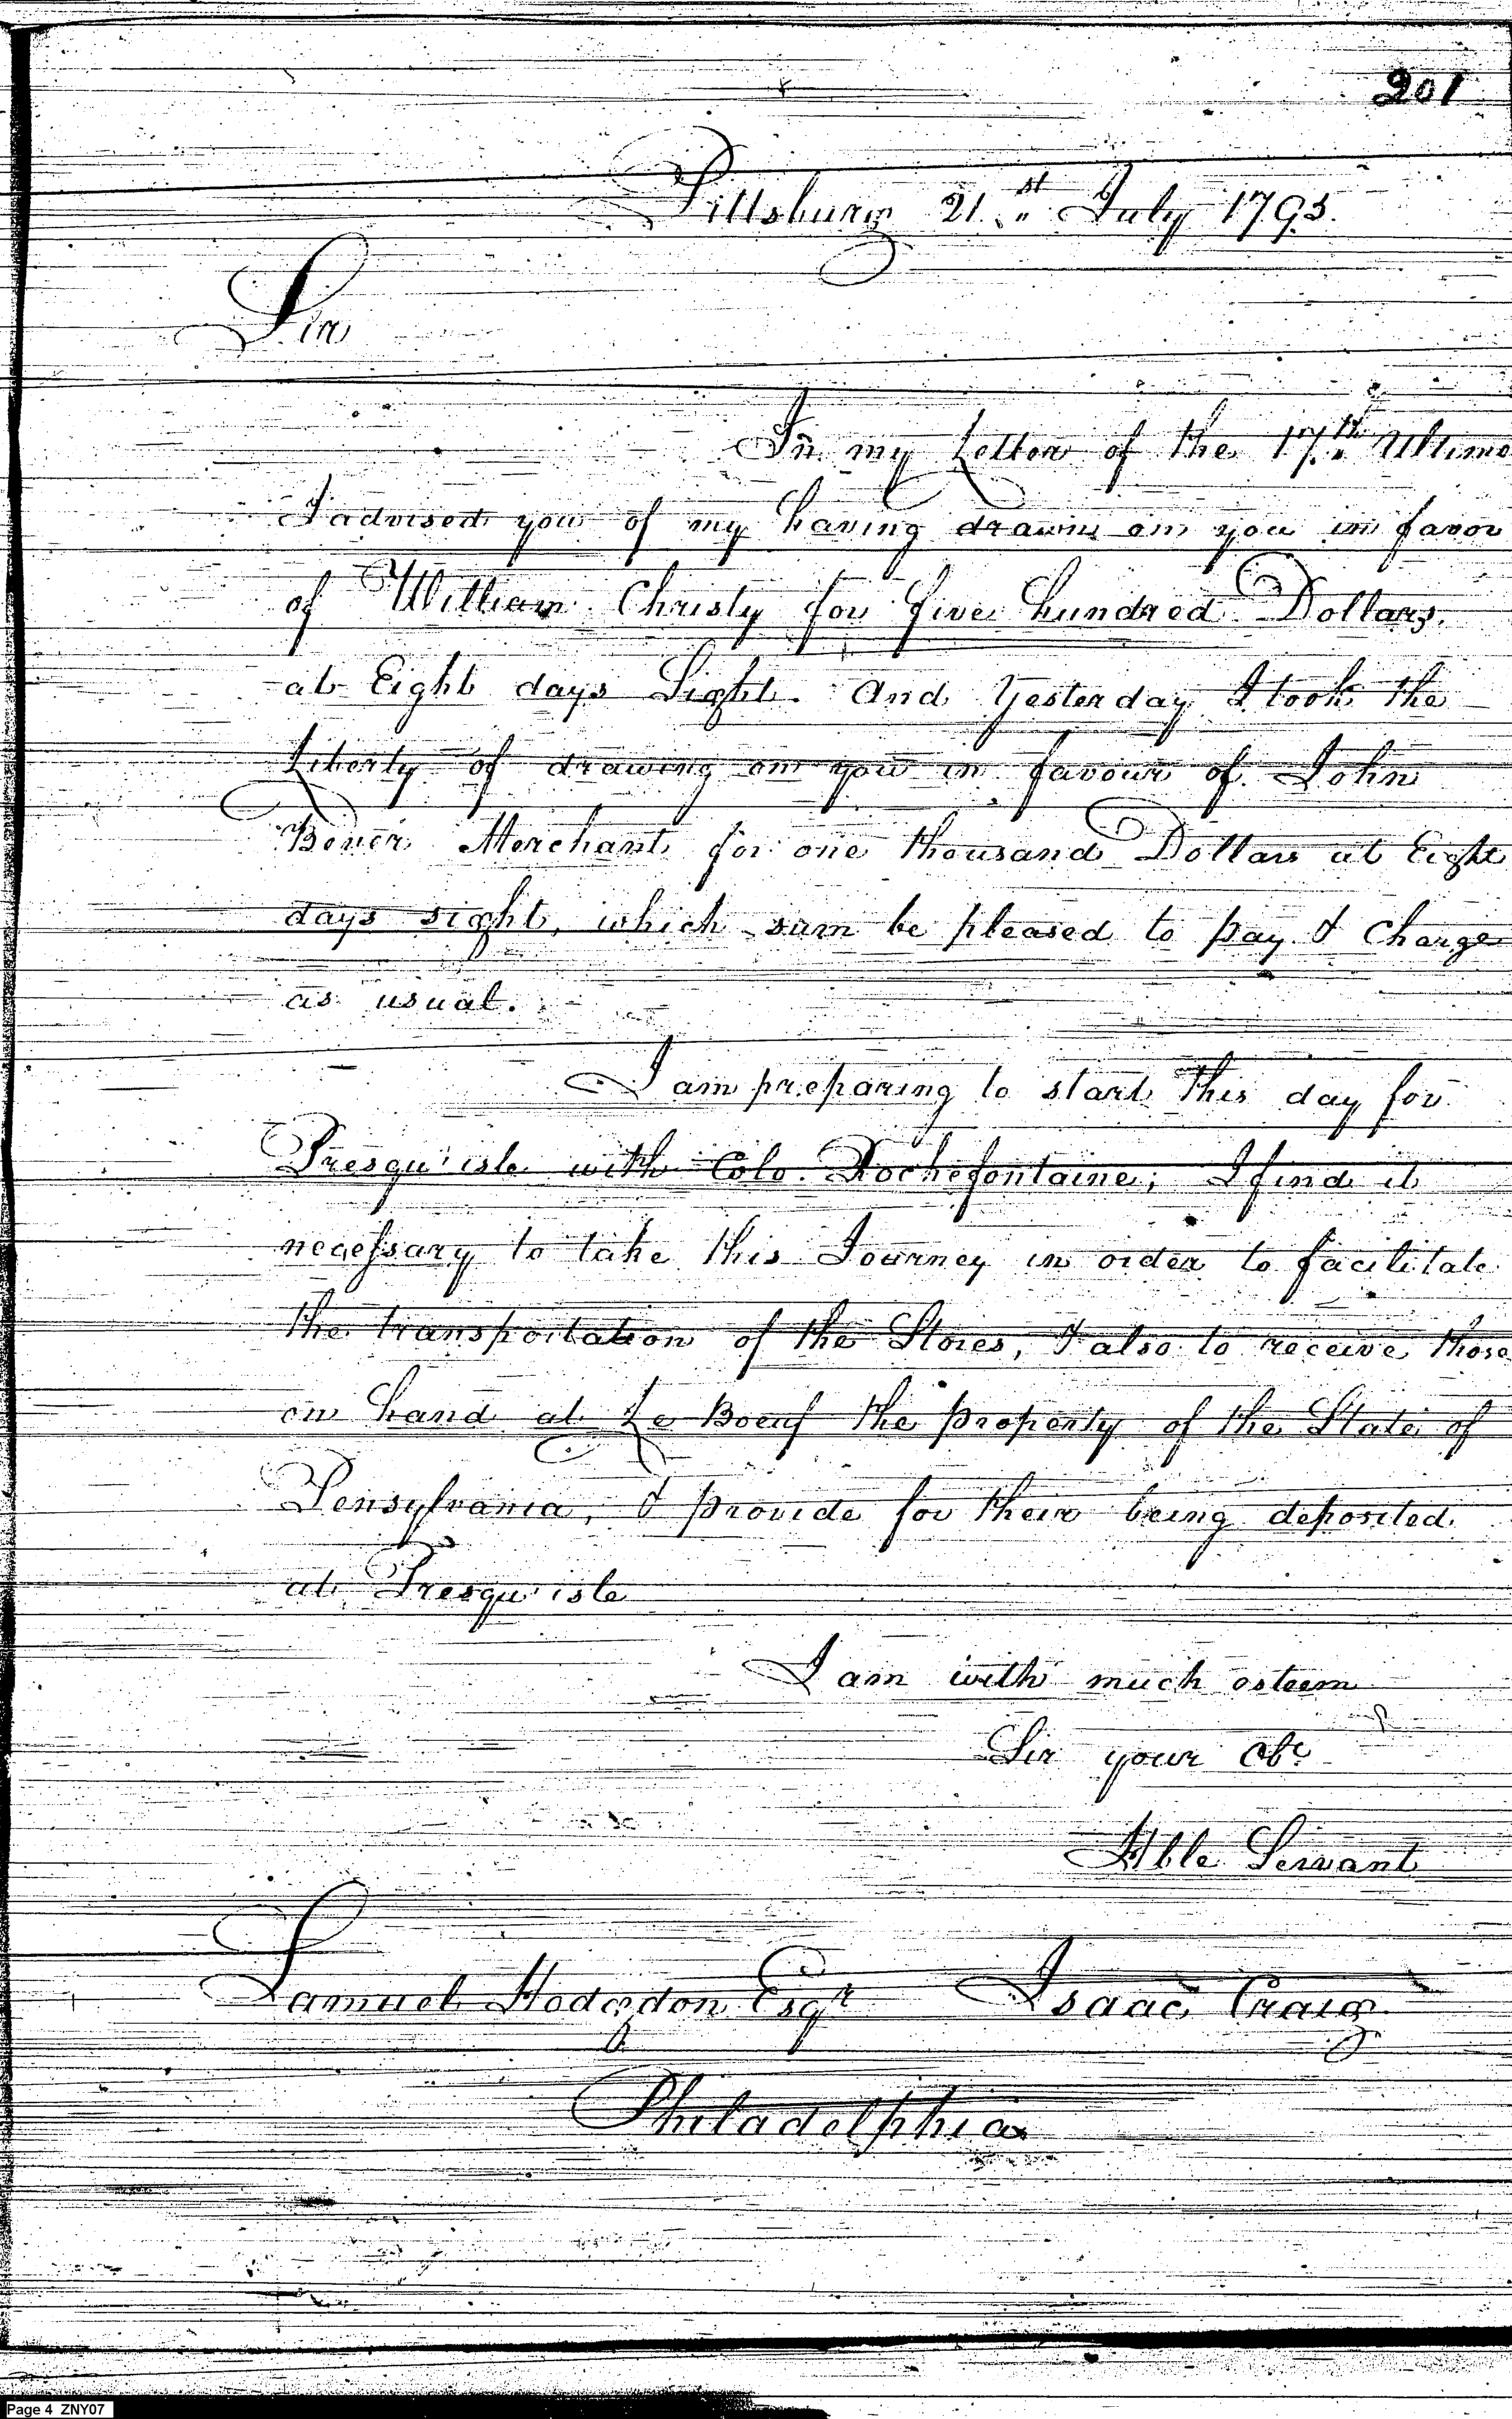 201
Pittsburg 21.st July 1795.
Sir
In my Letter of the 17.th Ultimo
I advised you of my having drawn on you in favor
of William Christy for five hundred Dollars.
at Eight days Sight. And Yesterday I took the
Liberty of drawing on you in favour of John
Merchant for one thousand Dollars at Eight
days sight, which sum be pleased to pay & Charge
as usual.
I am preparing to start this day for
Presqu'isle with Colo. Rochefontaine; I find it
necessary to take this Journey in order to facilitate
the transportation of the Stores, & also to receive those
on hand at Le Boeuf the property of the State of
Pensylvania, & provide for their being deposited
at Presqu'isle
I am with much esteem
Sir your Obt
Hble Servant
Samuel Hodgdon Esqr Isaac Craig
Philadelphia
Page 4 ZNY07